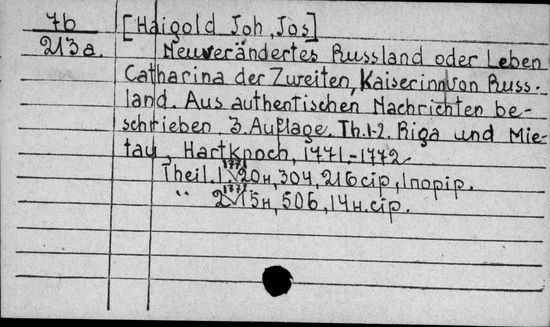 7b
213a.
[Haigold Joh, Jos]
Neuverändertes Russland oder Leben
Catharina der Zweiten, Kaiserinn von Russ-
land. Aus authentischen Nachrichten be-
schrieben. 3. Auflage. Th. 1-2. Riga und Mie-
tau, Hartknoch, 1771-1772
Theil. 1 1771 20н, 304, 216 cip, 1 порiр.
" 2 1771 15н, 506, 14н. cip.